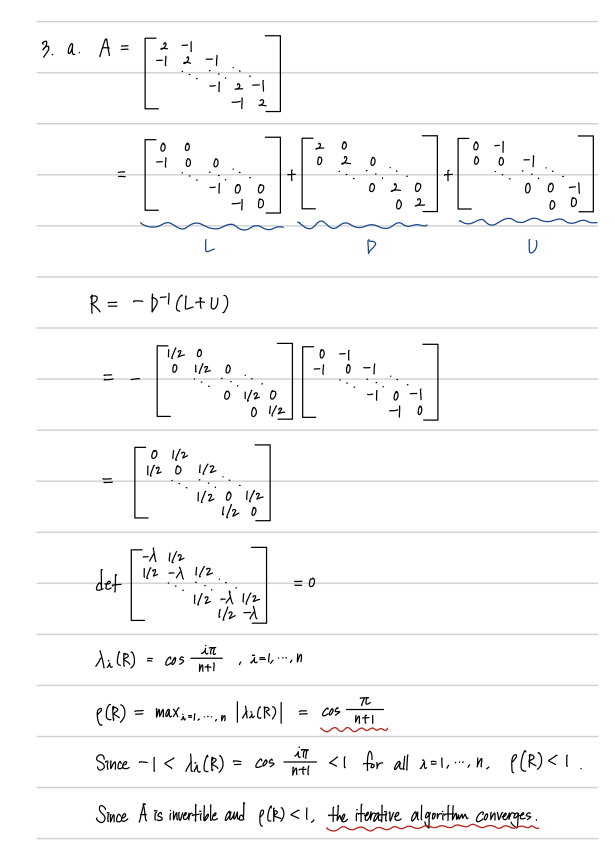 3. a. A = [ 2 -1
-1 2 -1
⋱ ⋱ ⋱
-1 2 -1
-1 2 ]
= [ 0 0
-1 0 0
⋱ ⋱ ⋱
-1 0 0
-1 0 ] + [ 2 0
0 2 0
⋱ ⋱ ⋱
0 2 0
0 2 ] + [ 0 -1
0 0 -1
⋱ ⋱ ⋱
0 0 -1
0 0 ]
L D U
R = - D⁻¹ (L+U)
= - [ 1/2 0
0 1/2 0
⋱ ⋱ ⋱
0 1/2 0
0 1/2 ] [ 0 -1
-1 0 -1
⋱ ⋱ ⋱
-1 0 -1
-1 0 ]
= [ 0 1/2
1/2 0 1/2
⋱ ⋱ ⋱
1/2 0 1/2
1/2 0 ]
det [ -λ 1/2
1/2 -λ 1/2
⋱ ⋱ ⋱
1/2 -λ 1/2
1/2 -λ ] = 0
λᵢ(R) = cos iπ/(n+1) , i=1,⋯,n
ρ(R) = max i=1,⋯,n |λᵢ(R)| = cos π/(n+1)
Since -1 < λᵢ(R) = cos iπ/(n+1) < 1 for all i=1,⋯,n, ρ(R) < 1 .
Since A is invertible and ρ(R) < 1, the iterative algorithm converges.